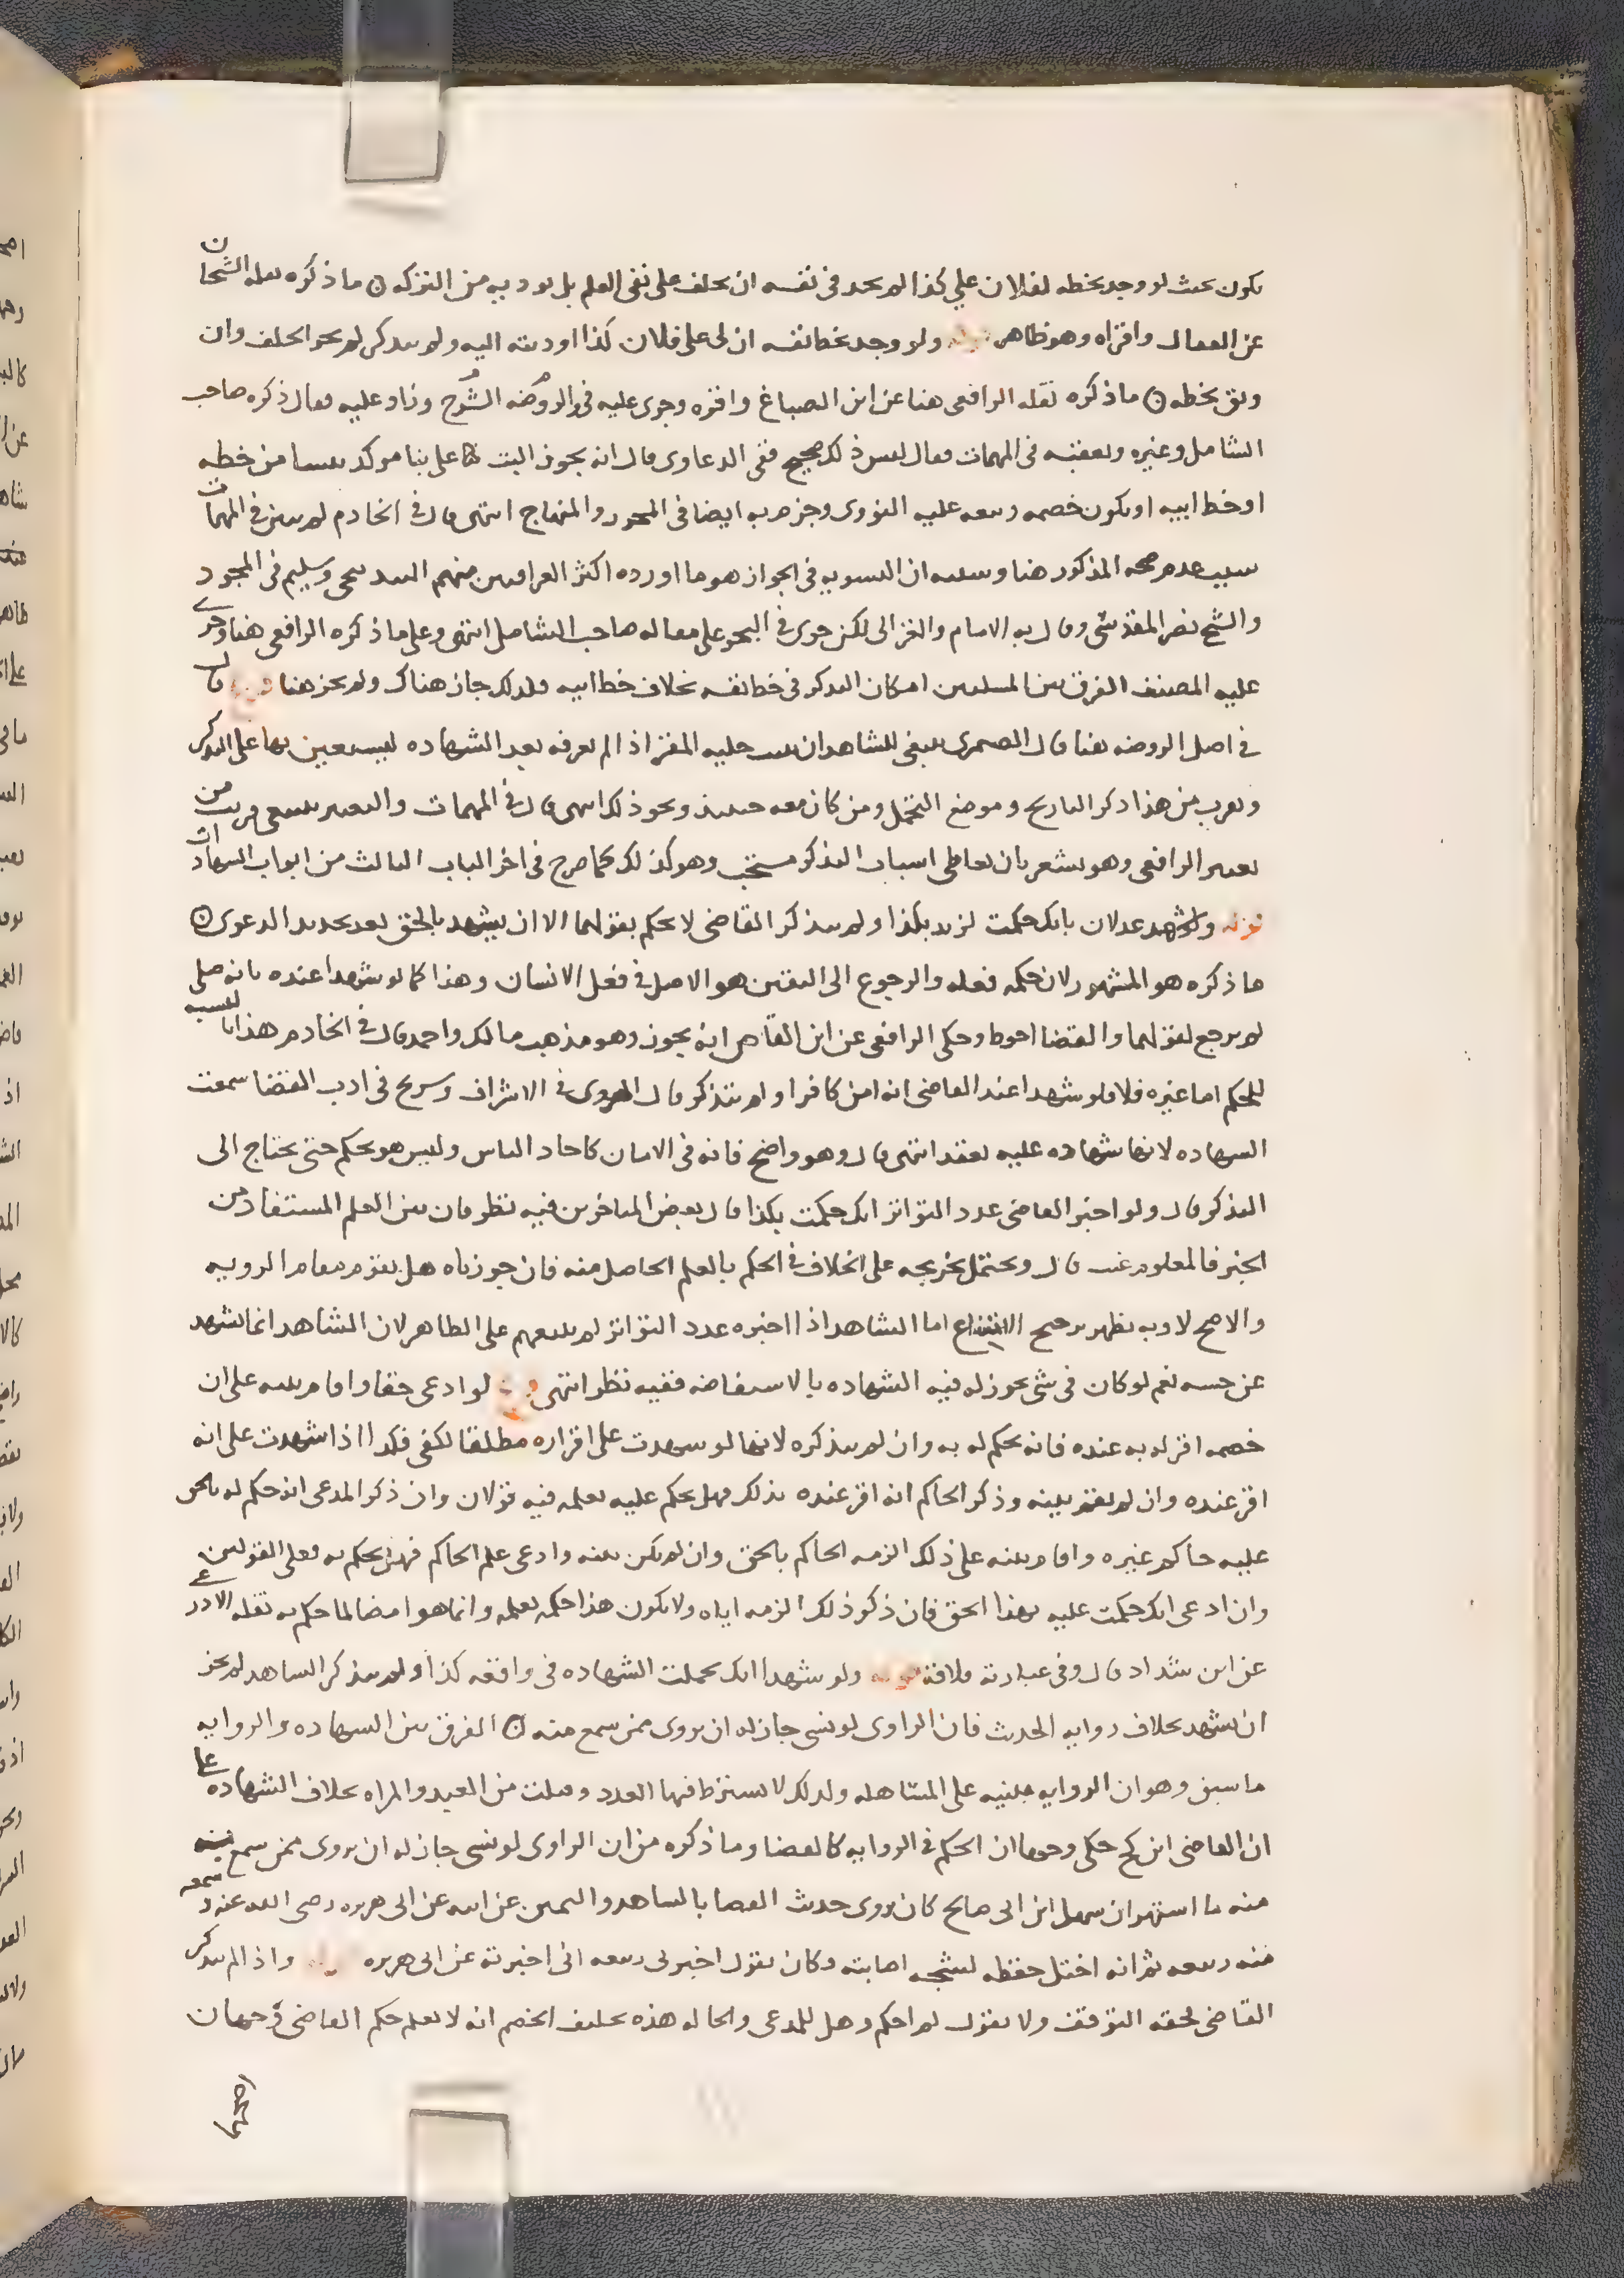 يكون بحيث لو وجد بخطه لفلان علي كذا لم يجد في نفسه ان يحلف على نفي العلم بل يوديه من التركه ه ما ذكره نقله الشيخان
عن القفال واقراه وهو ظاهر قوله ولو وجد بخط نفسه ان لي على فلان كذا او ديته اليه ولم يتذكر لم يجز الحلف وان
وثق بخطه ه ما ذكره نقله الرافعي هنا عن ابن الصباغ واقره وجرى عليه في الروضه الشرح وزاد عليه فقال ذكره صاحب
الشامل وغيره وتعقبه في المهمات فقال ليس ذلك صحيح ففي الدعاوى قال انه يجوز البت بناء على ظن موكد من خطه
او خط ابيه او نكون خصمه وتبعه عليه النووي وجزم به ايضا في المحرر والمنهاج انتهى قال في الخادم لم يبين في المهمات
سبب عدم صحه المذكور هنا وسببه ان التسويه في الجواز هو ما اورده اكثر العراقيين منهم البندنيجي وسليم في المجرد
والشيخ نصر المقدسي وقال به الامام والغزالي لكن جرى في البحر على مقاله صاحب الشامل انتهى وعلى ما ذكره الرافعي هنا وجرى
عليه المصنف الفرق بين المسلتين امكان التذكر في خط نفسه بخلاف خط ابيه فلذلك جاز هناك ولم يجز هنا فرع قال
في اصل الروضه هنا قال الصيمري ينبغي للشاهد ان يثبت حليه المقر اذا لم يعرفه بعد الشهاده ليستعين بها على التذكر
ويقرب من هذا ذكر التاريخ وموضع التحمل ومن كان معه حينئذ ونحو ذلك انتهى قال في المهمات والتعبير ينبغي قريب من
تعبير الرافعي وهو يشعر بان تعاطي اسباب التذكر مستحب وهو كذلك كما صرح في اخر الباب الثالث من ابواب الشهادات
قوله ولو شهد عدلان بانك حكمت لزيد بكذا ولم يتذكر القاضي لا يحكم بقولهما الا ان يشهد بالحق بعد تجديد الدعوى ه
ما ذكره هو المشهور لان حكمه فعله والرجوع الى اليقين هو الاصل في فعل الانسان وهذا كما لو شهدا عنده بانه صلى
لم يرجع لقولهما والقضا احوط وحكى الرافعي عن ابن القاص انه يجوز وهو مذهب مالك واحمد قال في الخادم هذا بالنسبه
للحكم اما غيره فلا فلو شهدا عند القاضي انه امن كافرا ولم يتذكر قال الهروي في الاشراف وسريج في ادب القضا سمعت
الشهاده لانها شهاده عليه بعقد انتهى قال وهو واضح فانه في الامان كاحاد الناس وليس هو بحكم حتى يحتاج الى
التذكر قال ولو اخبر القاضي عدد التواتر انك حكمت بكذا قال بعض المتاخرين فيه نظر فان بين العلم المستفاد من
الخبر فالمعلوم قال ويحتمل تخريجه على الخلاف في الحكم بالعلم الحاصل منه فان جوزناه هل يقوم مقام الرويه
والاصح لا وبه يظهر ترجيح الامتناع اما الشاهد اذا اخبره عدد التواتر لم ينفعهم على الظاهر لان الشاهد انما يشهد
عن حسه نعم لو كان في شي يجوز له فيه الشهاده بالاستفاضه ففيه نظر انتهى لو ادعى حقا واقام بينه على ان
خصمه اقر له به عنده فانه يحكم له به وان لم يذكره لانها لو شهدت على اقراره مطلقا لكفى فكذا اذا شهدت على انه
اقر عنده وان لم يقم بينه وذكر الحاكم انه اقر عنده بذلك فهل يحكم عليه بعلمه فيه قولان وان ذكر المدعي انه حكم له بالحق
عليه حاكم غيره واقام بينه على ذلك الزمه الحاكم بالحق وان لم يكن بينه وادعى علم الحاكم فهل يحكم به فعلى القولين
وان ادعى انك حكمت عليه بهذا الحق فان ذكر ذلك الزمه اياه ولا يكون هذا حكمه بعلمه وانما هو امضا لما حكم به نقله الاذرعي
عن ابن شداد قال وفي عبارته قلاقه قوله ولو شهدا انك تحملت الشهاده في واقعه كذا ولم يتذكر الشاهد لم يجز
ان يشهد بخلاف روايه الحديث فان الراوي لو نسي جاز له ان يروي ممن سمع منه ه الفرق بين الشهاده والروايه
ما سبق وهو ان الروايه مبنيه على المساهله ولذلك لا يشترط فيها العدد وقبلت من العبد والمراه بخلاف الشهاده على
ان القاضي ابن كج حكى وجها ان الحكم في الروايه كالقضا وما ذكره من ان الراوي لو نسي جاز له ان يروي ممن سمع
منه ما اشتهر ان سهيل ابن ابي صالح كان يروي حديث القضا بالشاهد واليمين عن ابيه عن ابي هريره رضي الله عنه وسمعه
منه ربيعه ثم انه اختل حفظه لشجه اصابته وكان يقول اخبرني ربيعه اني اخبرته عن ابي هريره قوله واذا لم يتذكر
القاضي فحقه التوقف ولا يقول لم احكم وهل للمدعي والحاله هذه تحليف الخصم انه لا يعلم حكم القاضي وجهان
اصحهما